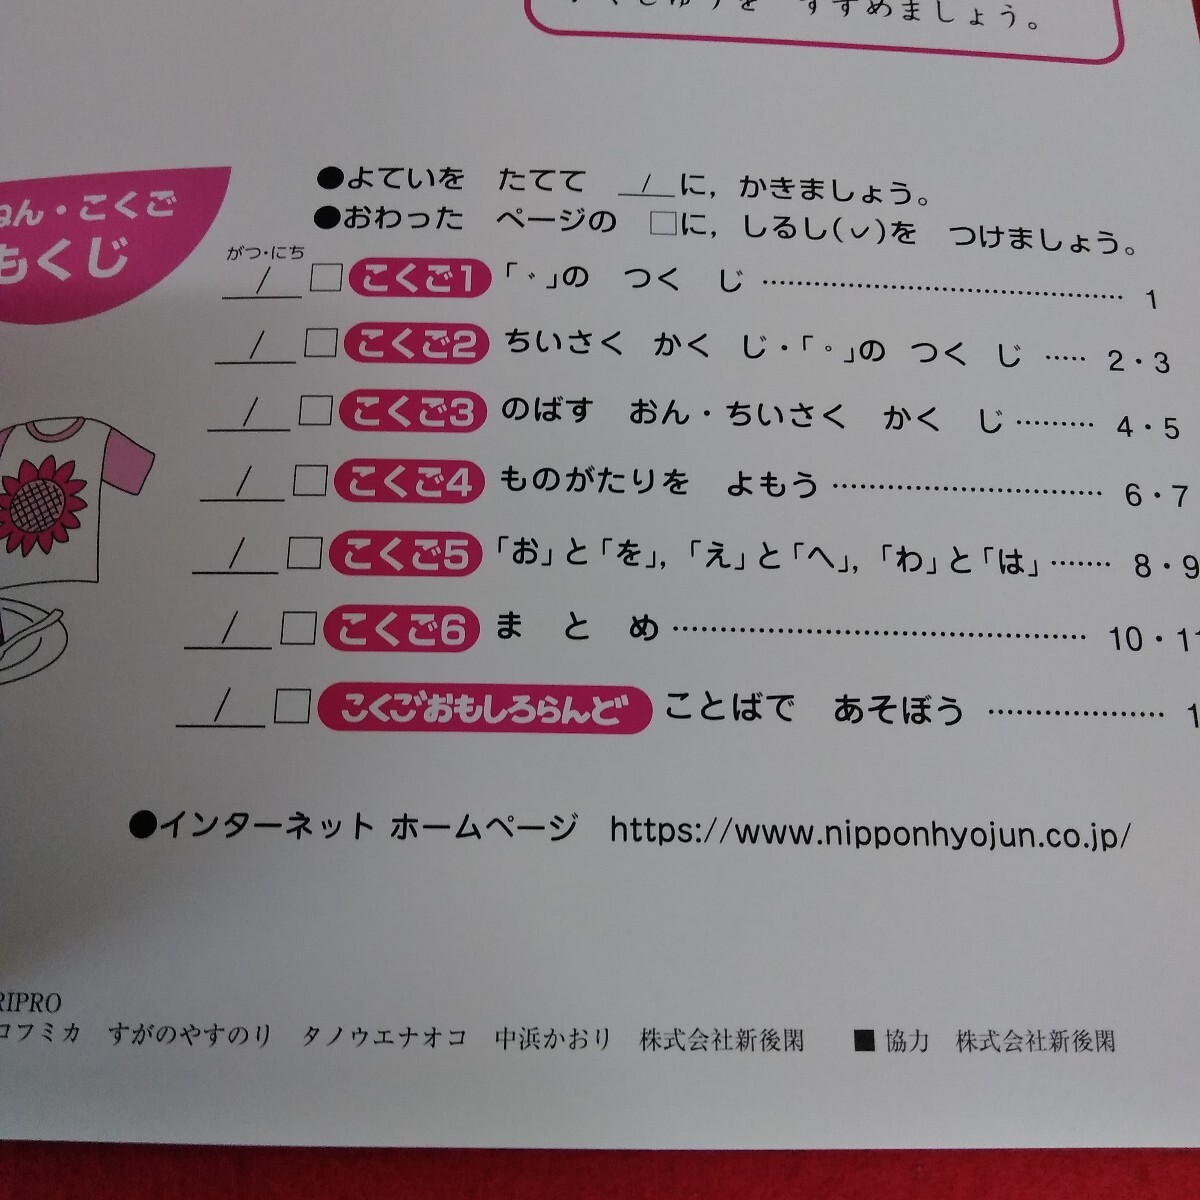 すすめましょう。
●よていを たてて __/__に，かきましょう。
●おわった ページの □に，しるし(✓)を つけましょう。
ねん・こくご
もくじ
がつ・にち
/ □ こくご1 「゛」の つく じ …… 1
/ □ こくご2 ちいさく かく じ・「゜」の つく じ …… 2・3
/ □ こくご3 のばす おん・ちいさく かく じ …… 4・5
/ □ こくご4 ものがたりを よもう …… 6・7
/ □ こくご5 「お」と「を」，「え」と「へ」，「わ」と「は」 …… 8・9
/ □ こくご6 ま と め …… 10・11
/ □ こくごおもしろらんど ことばで あそぼう …… 1
●インターネット ホームページ https://www.nipponhyojun.co.jp/
RIPRO
コフミカ すがのやすのり タノウエナオコ 中浜かおり 株式会社新後閑 ■ 協力 株式会社新後閑